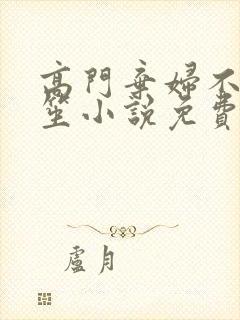 高門棄婦不
笙小說免費
盧月